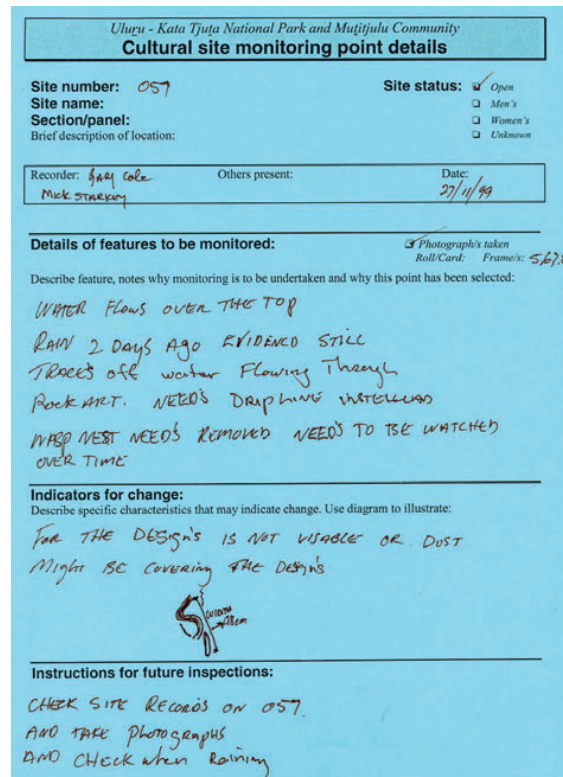 Uluṟu - Kata Tjuṯa National Park and Muṯitjulu Community
Cultural site monitoring point details
Site number: 057
Site status: Open
Site name:
Men's
Section/panel:
Women's
Brief description of location:
Unknown
Recorder: Gary Cole
Others present:
Date:
Mick STARKEY
27/11/99
Details of features to be monitored:
Photograph/s taken
Roll/Card: Frame/s: 5,6,7,8
Describe feature, notes why monitoring is to be undertaken and why this point has been selected:
WATER Flows OVER THE TOP
RAIN 2 DAYS Ago EVIDENCO STILL
TRACES off water Flowing Through
Rock ART. NEED'S DRIPLINE INSTELLED
WASP NEST NEED'S REMOVED NEED'S TO BE WATCHED
OVER TIME
Indicators for change:
Describe specific characteristics that may indicate change. Use diagram to illustrate:
FOR THE DESIGN'S IS NOT VISABLE OR DUST
Might BE COVERING THE DESIGN'S
Instructions for future inspections:
CHECK SITE RECORDS ON 057
AND TAKE Photographs
AND CHECK when Raining